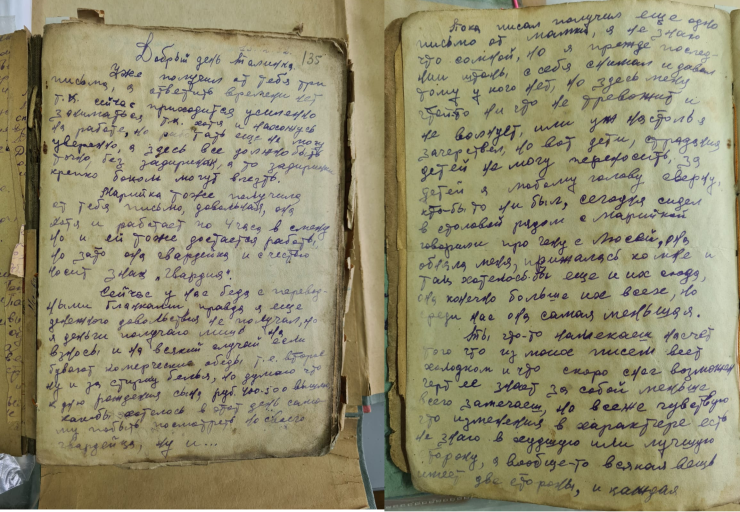 135
Добрый день Талинка
Уже получил от тебя три
письма, а ответить времени нет
т.к. сейчас приходится усиленно
заниматься т.к. хотя и нахожусь
на работе, но работать еще не могу
уверенно, а здесь все должно быть
точно, без задиринки, а то задиринки
крепко боком могут вылезть.
Маринка тоже получила
от тебя письмо, довольная, она
хотя и работает по 4 часа в смену
но и ей тоже достается работы,
но зато она гвардейка и с честью
носит знак "гвардия".
Сейчас у нас беда с перевод-
ными бланками правда я еще
денежного довольствия не получал, но
я деньги получаю лишь на
взносы и на всякий случай если
бывают коммерческие обеды т.е. вторые
ну и за стирку белья, но думаю что
к дню рождения сына руб. 400-500 вышлю
как бы хотелось в этот день само-
му побыть, посмотреть на своего
гвардейца, ну и...
Пока писал получил еще одно
письмо от мамки, я не знаю
что со мной, но я прежде послед-
нии штаны с себя снимал и давал
тому у кого нет, но здесь меня
что-то ни что не тревожит и
не волнует, или уж настолько
зачерствел, но вот дети, страдания
детей не могу переносить, за
детей я любому голову сверну,
кто бы то ни был, сегодня сидел
в столовой рядом с Маринкой
говорили про Гену с Люсей, она
обняла меня, прижалась ко мне и
так хотелось бы еще и их сюда,
она конечно больше их всех, но
среди нас она самая меньшая.
Ты что-то намекаеш насчет
того что из моих писем веет
холодком и что скоро снег возможен
черт ее знает за собой меньше
всего замечаеш, но все же чувствую
что изменения в характере есть
не знаю в худшую или лучшую
сторону, а вообще-то всякая вещь
имеет две стороны, и каждая